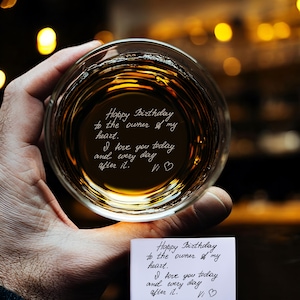 Happy Birthday
to the owner of my
heart.
I love you today
and every day
after it.
Vi ♡
Happy Birthday
to the owner of my
heart.
I love you today
and every day
after it.
Vi ♡